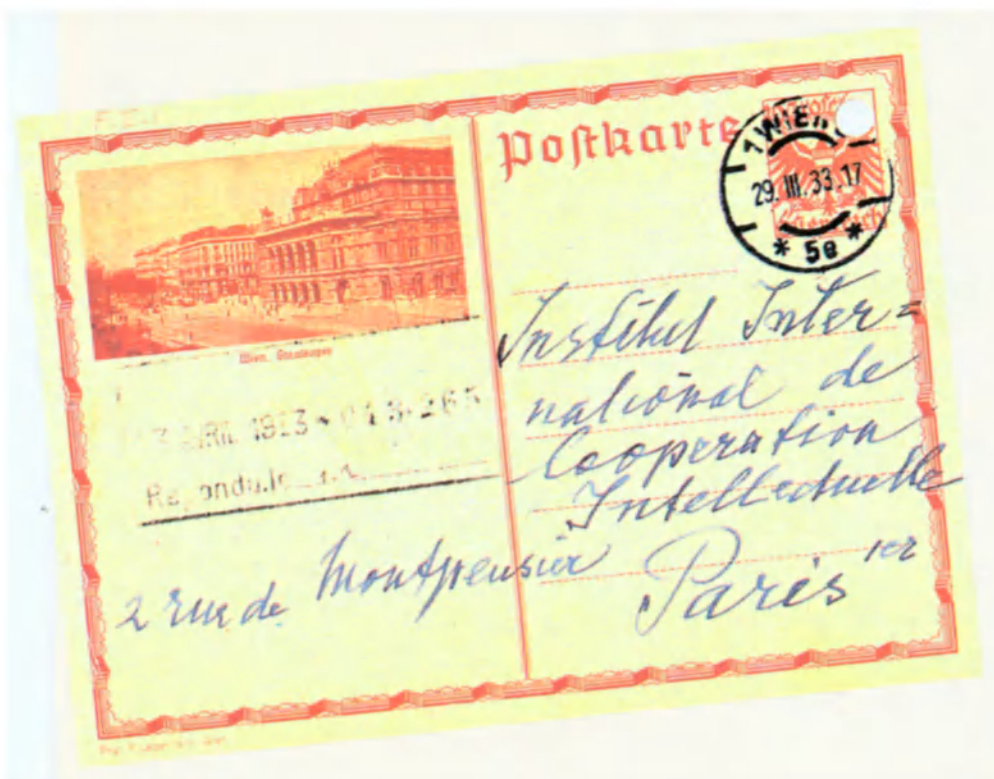 Postkarte
1 WIEN
29. III. 33. 17
* 5e *
Wien, Staatsoper
AVRIL 1933 * 013265
Répondu le
Institut Inter=
national de
Cooperation
Intellectuelle
2 rue de Montpensier
Paris 1er